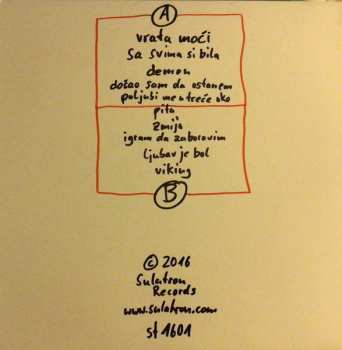 A
vrata moći
sa svima si bila
demon
došao sam da ostanem
poljubi me u treće oko
pita
zmija
igram da zaboravim
ljubav je bol
viking
B
© 2016
Sulatron
Records
www.sulatron.com
st 1601